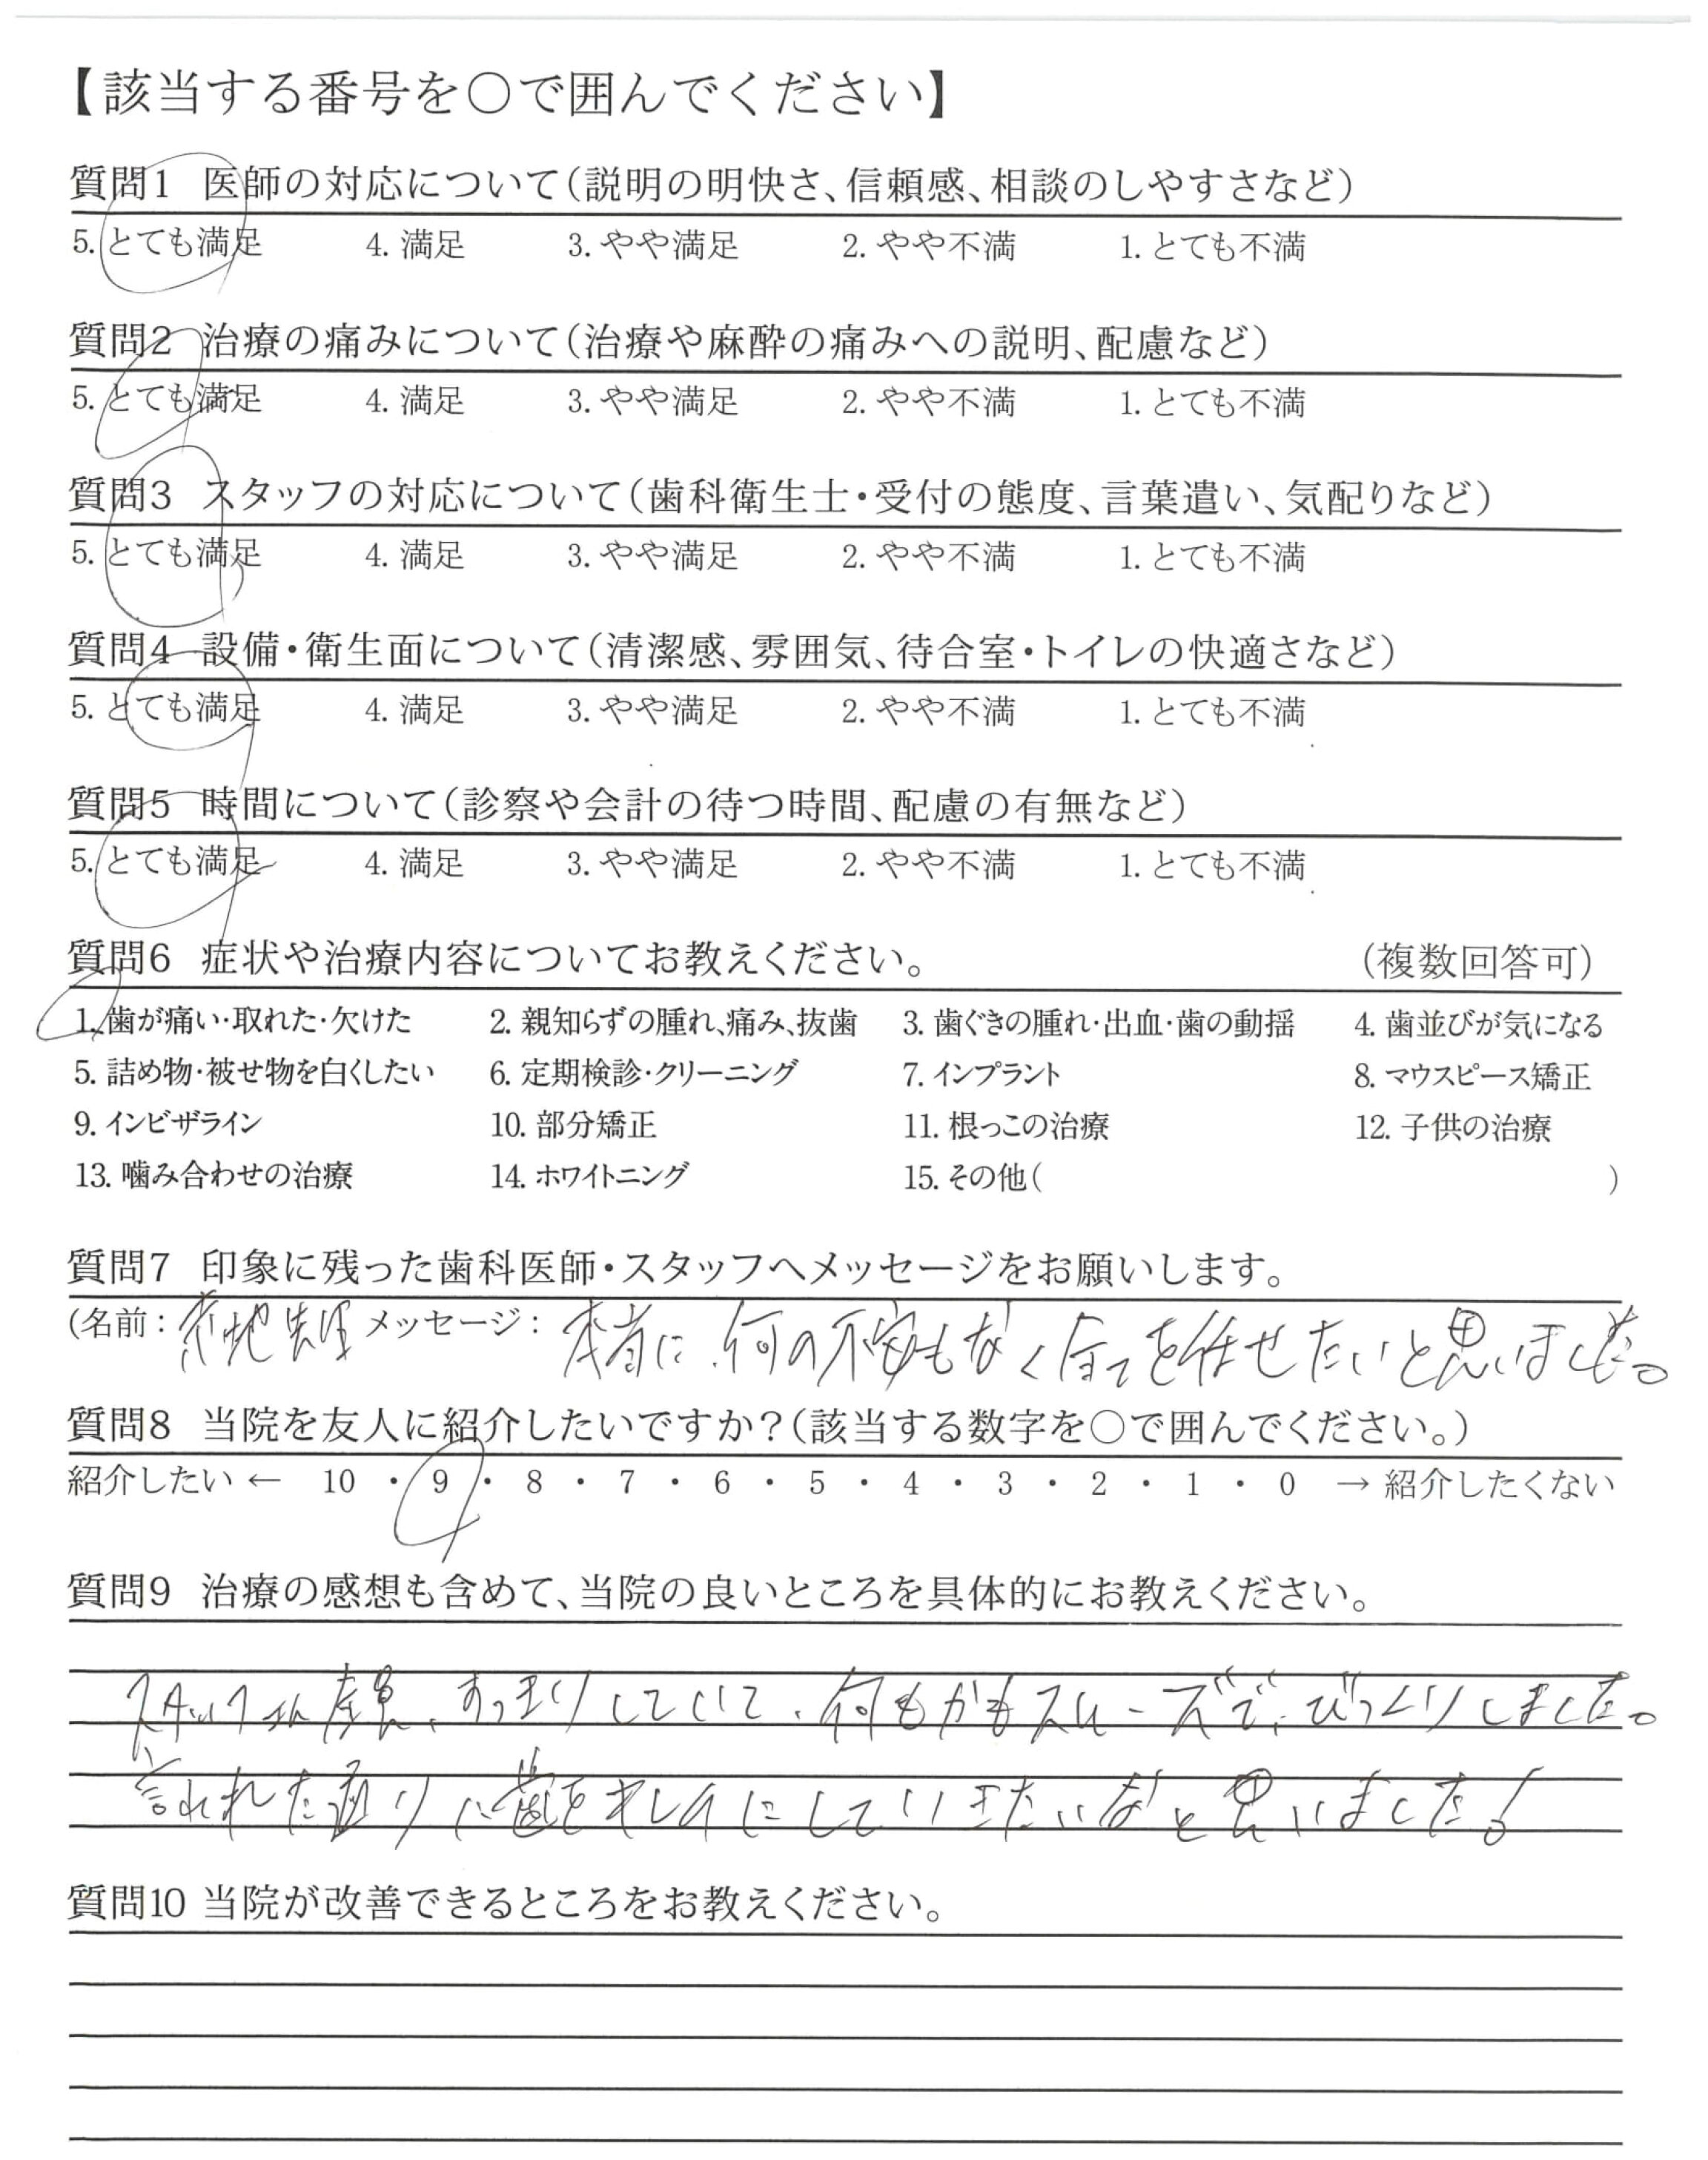 【該当する番号を○で囲んでください】
質問1 医師の対応について(説明の明快さ、信頼感、相談のしやすさなど)
5. とても満足 4. 満足 3. やや満足 2. やや不満 1. とても不満
質問2 治療の痛みについて(治療や麻酔の痛みへの説明、配慮など)
5. とても満足 4. 満足 3. やや満足 2. やや不満 1. とても不満
質問3 スタッフの対応について(歯科衛生士・受付の態度、言葉遣い、気配りなど)
5. とても満足 4. 満足 3. やや満足 2. やや不満 1. とても不満
質問4 設備・衛生面について(清潔感、雰囲気、待合室・トイレの快適さなど)
5. とても満足 4. 満足 3. やや満足 2. やや不満 1. とても不満
質問5 時間について(診察や会計の待つ時間、配慮の有無など)
5. とても満足 4. 満足 3. やや満足 2. やや不満 1. とても不満
質問6 症状や治療内容についてお教えください。 (複数回答可)
1. 歯が痛い・取れた・欠けた 2. 親知らずの腫れ、痛み、抜歯 3. 歯ぐきの腫れ・出血・歯の動揺 4. 歯並びが気になる
5. 詰め物・被せ物を白くしたい 6. 定期検診・クリーニング 7. インプラント 8. マウスピース矯正
9. インビザライン 10. 部分矯正 11. 根っこの治療 12. 子供の治療
13. 噛み合わせの治療 14. ホワイトニング 15. その他( )
質問7 印象に残った歯科医師・スタッフへメッセージをお願いします。
(名前: 先生 メッセージ: 本当に何の不安もなく全てを任せたいと思いました。
質問8 当院を友人に紹介したいですか?(該当する数字を○で囲んでください。)
紹介したい ← 10 ・ 9 ・ 8 ・ 7 ・ 6 ・ 5 ・ 4 ・ 3 ・ 2 ・ 1 ・ 0 → 紹介したくない
質問9 治療の感想も含めて、当院の良いところを具体的にお教えください。
スタッフさん全員、していて、何もかもスムーズで、びっくりしました。
言われた通りに歯をキレイにしていきたいなと思いました!
質問10 当院が改善できるところをお教えください。